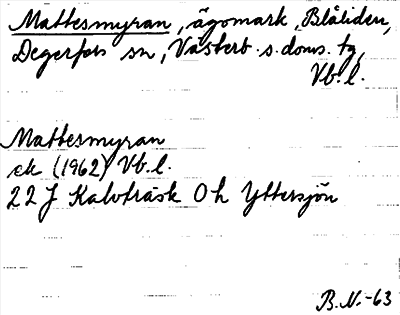 Mattesmyran, ägomark, Blåliden,
Degerfors sn, Västerb. s. doms. tg,
Vb. l.
Mattesmyran
ek (1962) Vb. l.
22 J Kalvträsk 0 h Yttersjön
B.N.-63